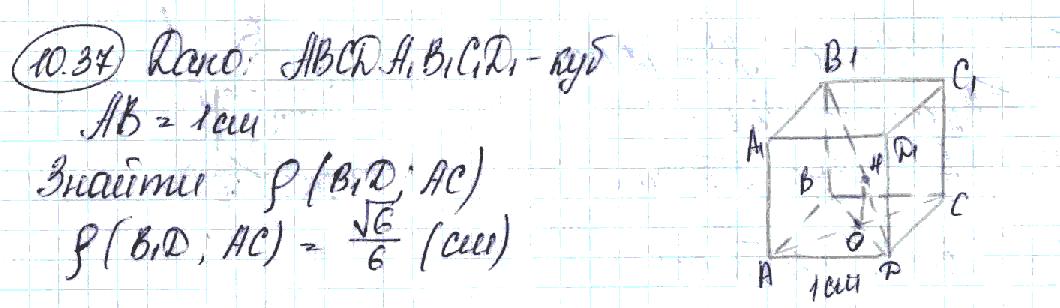 10.37 Дано: ABCDA₁B₁C₁D₁ - куб
AB = 1 см
Знайти ρ(B₁D; AC)
ρ(B₁D; AC) = √6/6 (см)
B1
C₁
A₁
D₁
B
H
C
O
A
D
1 см